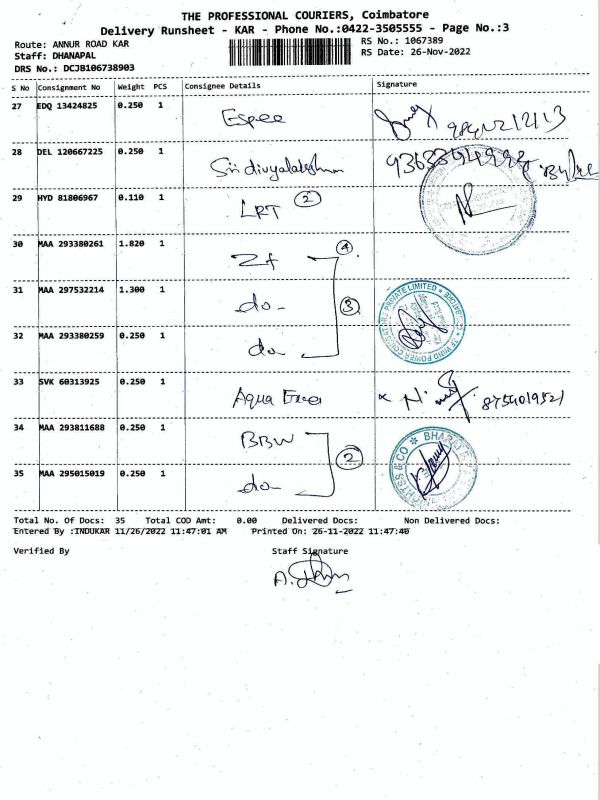 THE PROFESSIONAL COURIERS, Coimbatore
Delivery Runsheet - KAR - Phone No.:0422-3505555 - Page No.:3
Route: ANNUR ROAD KAR RS No.: 1067389
Staff: DHANAPAL RS Date: 26-Nov-2022
DRS No.: DCJB106738903
S No Consignment No Weight PCS Consignee Details Signature
27 EDQ 13424825 0.250 1 Espee
28 DEL 120667225 0.250 1 Sri
29 HYD 81806967 0.110 1 LRT 2
30 MAA 293380261 1.820 1 Zf 4
31 MAA 297532214 1.300 1 do- 3
PRIVATE LIMITED
WIND POWER
32 MAA 293380259 0.250 1 do-
33 SVK 60313925 0.250 1 Aqua 8754019521
34 MAA 293811688 0.250 1 BBW 2
& CO * BHARAT
35 MAA 295015019 0.250 1 do-
Total No. Of Docs: 35 Total COD Amt: 0.00 Delivered Docs: Non Delivered Docs:
Entered By :INDUKAR 11/26/2022 11:47:01 AM Printed On: 26-11-2022 11:47:40
Verified By Staff Signature